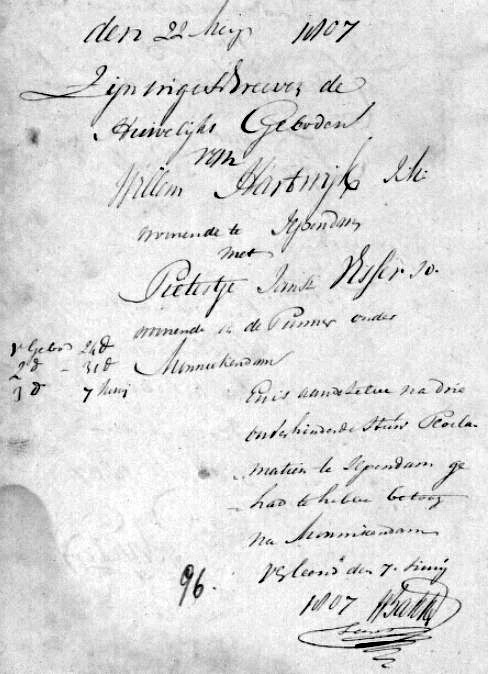 den 22 Meij 1807
Zijn ingeschreeven de
Huwelijks Geboden
van
Willem Hartwijk
woonende te Ilpendam
met
Pietertje Jansz Visser
woonende in de Purmer onder
Monnickendam
1e Gebod 24d
2d - 31d
3d 7 Junij
En is aan dezelve na drie
onverhinderde Huw Procla-
matien te Ilpendam ge
had te hebben betoog
na Monnickendam
verleend den 7e Junij
1807
96.